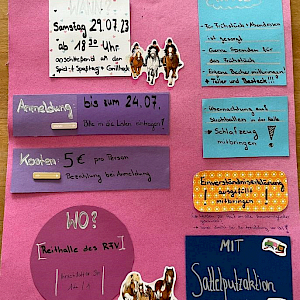 Samstag 29.07.23
ab 18 30 Uhr
anschließend an den
Spiel- + Spaßtag + Grillfest
Anmeldung bis zum 24.07.
Bitte in die Listen eintragen!
Kosten: 5€ pro Person
Bezahlung bei Anmeldung
WO?
Reithalle des RFV
Für Frühstück + Abendessen
ist gesorgt
- Gerne Spenden für
das Frühstück
- Eigene Becher mitbringen!
+ Teller und Besteck!!!
Übernachtung auf
Strohballen in der Halle
→ Schlafzeug
mitbringen
Einverständniserklärung
ausgefüllt
mitbringen!
MIT
Sattelputzaktion